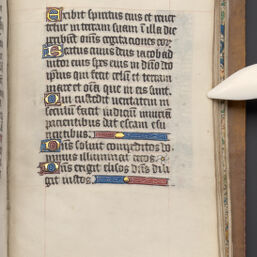 Exibit spiritus eius et revert
tetur in terram suam i illa die
peribunt om̄s cogitationes eor
Beatus cuius deus iacob ad
iutor eius spes eius in dn̄o deo
ipsius qui fecit celū et terram
mare et om̄a que in eis sunt.
Qui custodit veritatem in
seculū facit iudiciū iniuriā
pacientibus dat escam esu
rientibus.
Dn̄s soluit compeditos do
minus illuminat cecos.
Dn̄s erigit elisos dn̄s dili
git iustos